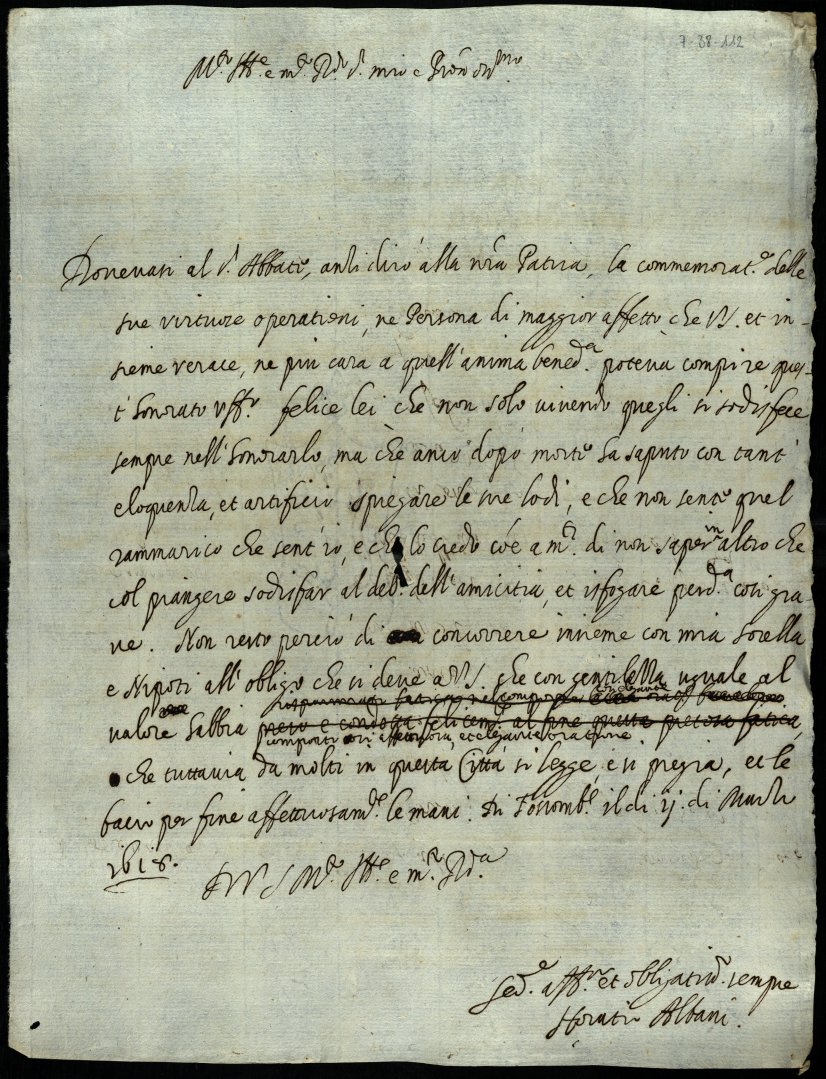 7-38-112
M.to Ill.re e m.to R.do S.r mio e Pron oss.mo
Dovevasi al S.r Abbate, anzi dirò alla nra Patria, la commemorat.e delle
sue virtuose operationi, ne Persona di maggior affetto che VS. et in-
sieme verace, ne più cara a quell'anima bened.a poteva compire ques-
t'honorato uff.o felice lei che non solo vivendo quegli si sodisfece
sempre nell'honorarlo, ma che anco dopò morte ha saputo con tant'
eloquenza, et artificio spiegare le sue lodi, e che non sente quel
rammarico che sent'io, e che lo credo cõe a m.e di non saper in altro che
col piangere sodisfar al deb.o dell'amicitia, et isfogare perd.a così gra-
ve. Non resto perciò di concorrere insieme con mia sorella
e Nipoti all'obligo che si deve a VS. che con gentilezza uguale al
valore habbia
composti affettuosa, et elegante oratione
che tuttavia da molti in questa Città si legge, e si pregia, et le
bacio per fine affettuosam.te le mani. Di Fossomb.e il di 15. di Marzo
1618.
D VS M.to Ill.re e m.to R.da
Ser.re aff.mo et obligatiss.o sempre
Horatio Albani.